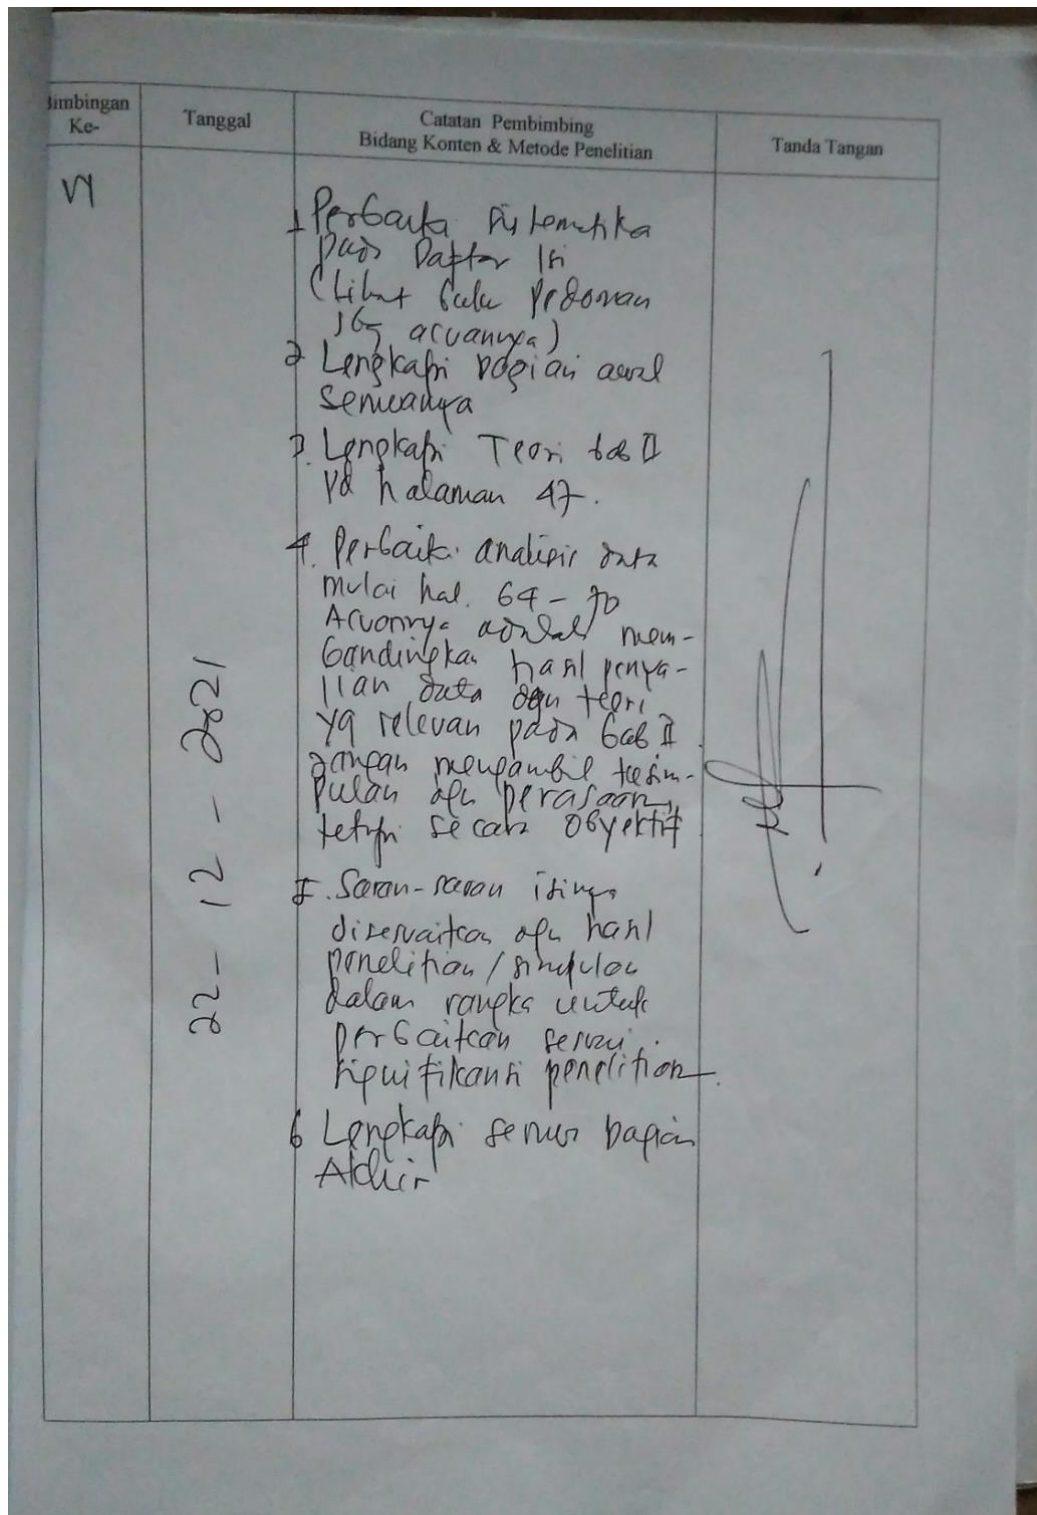 Bimbingan
Ke-
Tanggal
Catatan Pembimbing
Bidang Konten & Metode Penelitian
Tanda Tangan
VI
22 - 12 - 2021
1 Perbaiki sistematika
pada Daftar Isi
(Lihat buku pedoman
sbg acuannya)
2 Lengkapi bagian awal
semuanya
3. Lengkapi Teori bab II
pd halaman 47.
4. Perbaiki analisis data
mulai hal. 64 - 70
Acuannya adalah mem-
bandingkan hasil penya-
jian data dgn teori
yg relevan pada bab II
jangan mengambil kesim-
pulan dgn perasaan,
tetapi secara obyektif
5. Saran-saran isinya
disesuaikan dgn hasil
penelitian / simpulan
dalam rangka untuk
perbaikan sesuai
signifikansi penelitian.
6 Lengkapi semua bagian
Akhir